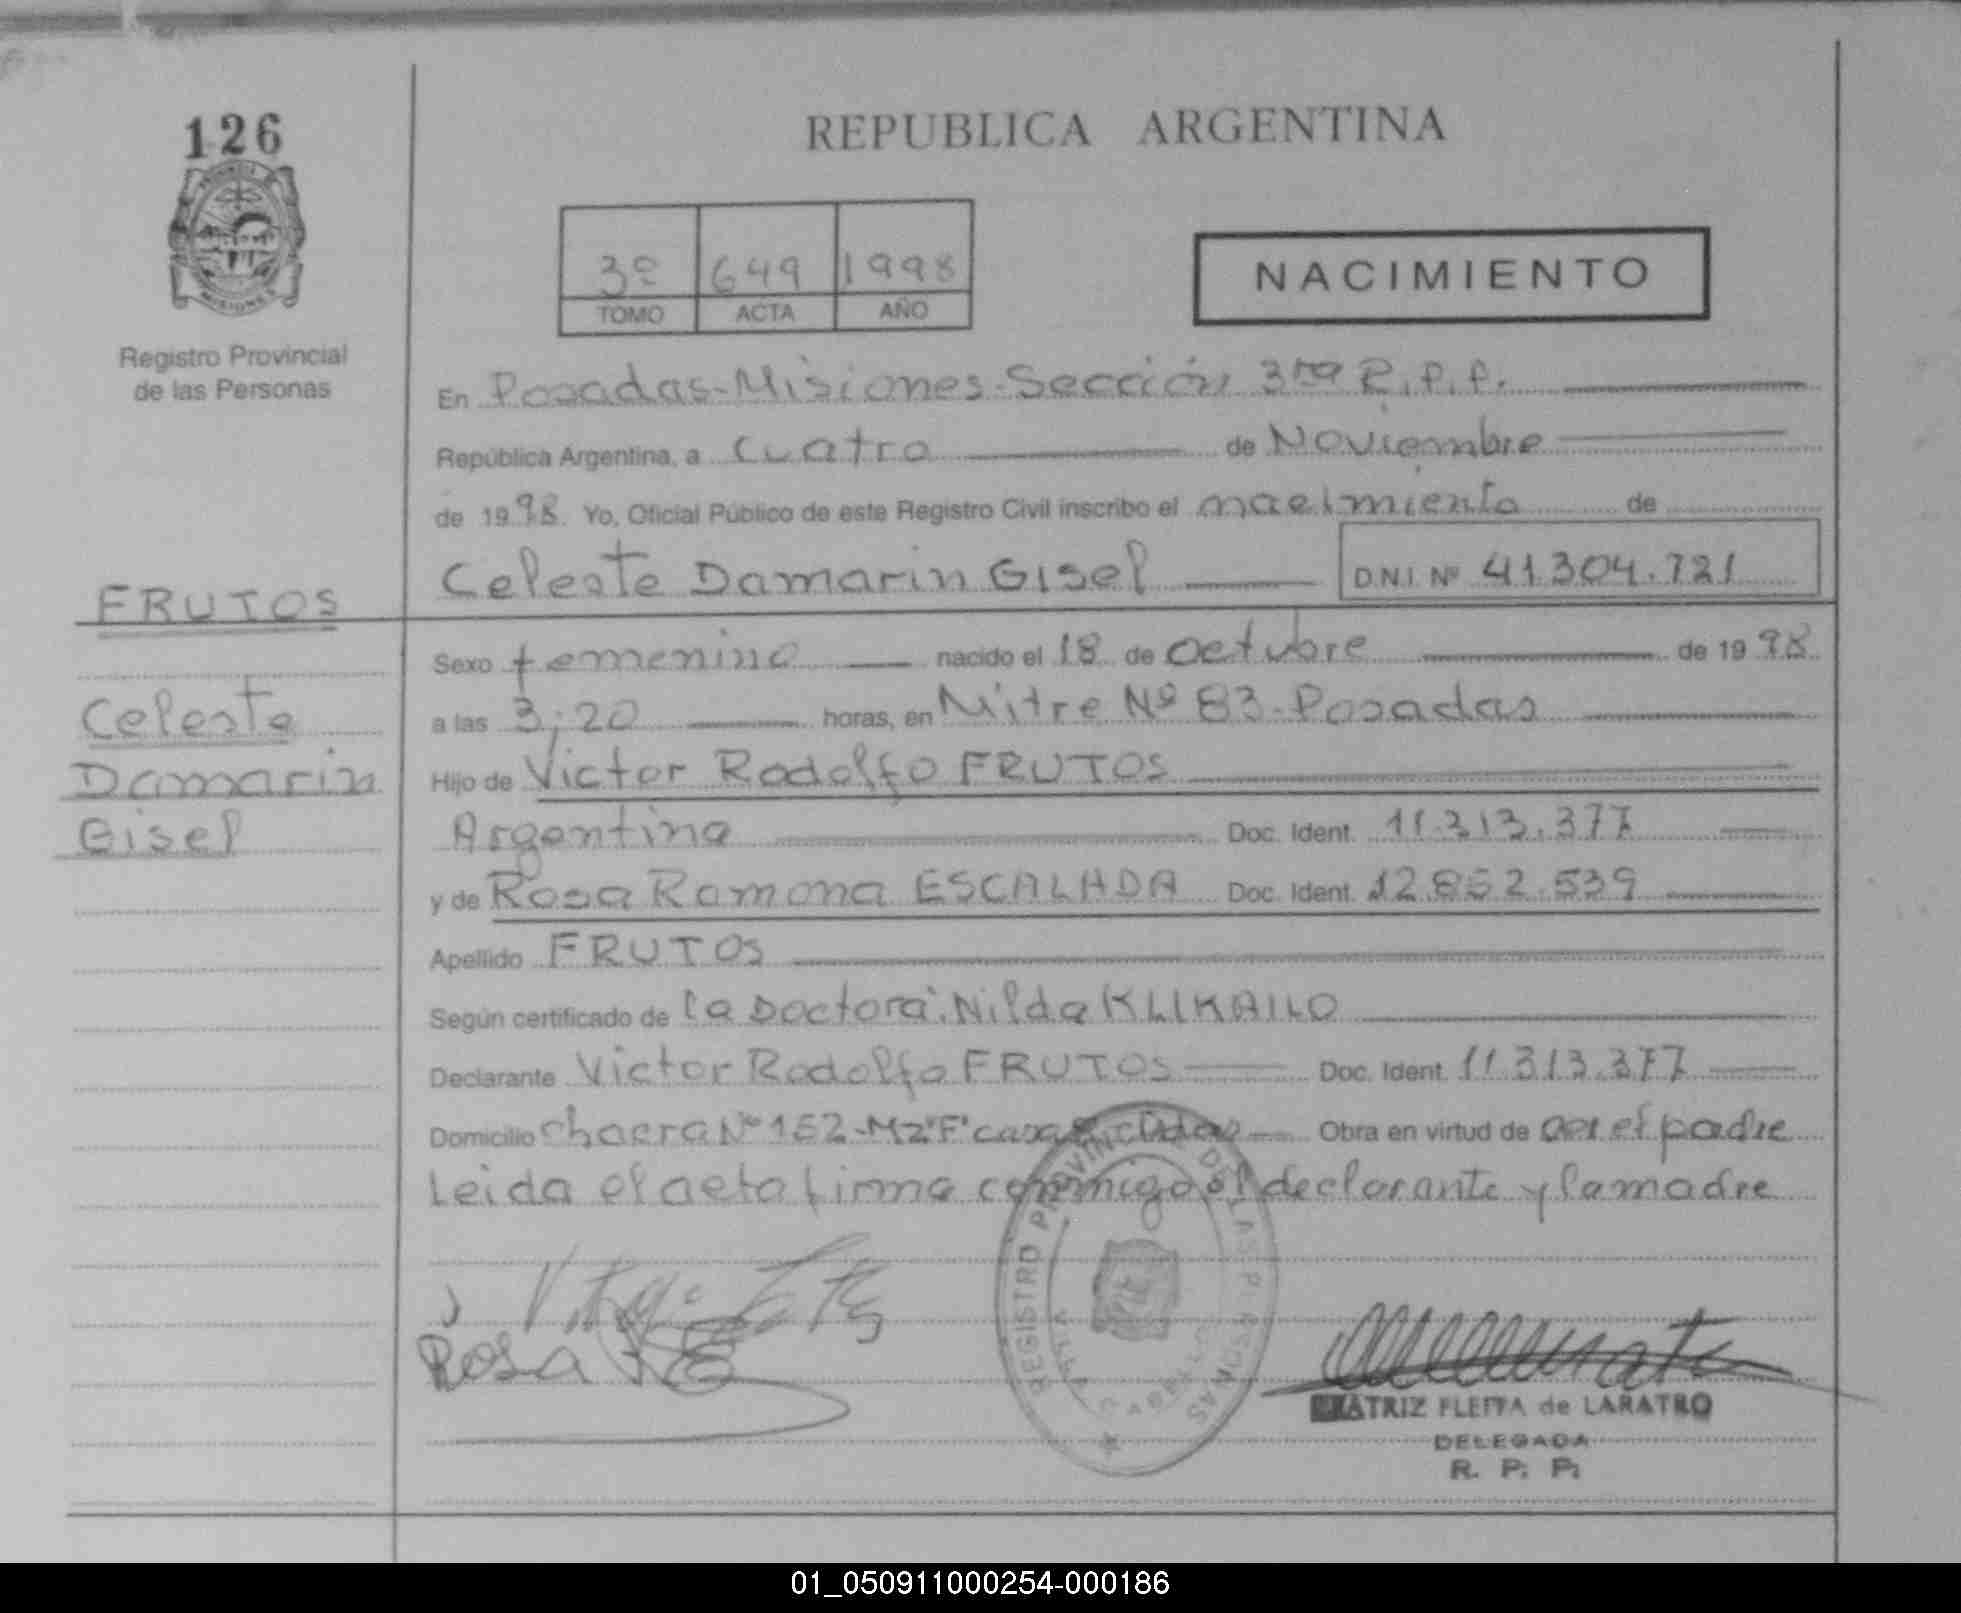 126
REPUBLICA ARGENTINA
3º 649 1998
TOMO ACTA AÑO
NACIMIENTO
Registro Provincial
de las Personas
En Posadas-Misiones-Sección 3ra R.P.P.
República Argentina, a Cuatro de Noviembre
de 1998. Yo, Oficial Público de este Registro Civil inscribo el nacimiento de
Celeste Damarin Gisel D.N.I. Nº 41.304.721
FRUTOS
Celeste
Damarin
Gisel
Sexo femenino nacido el 18 de octubre de 1998
a las 3;20 horas, en Mitre Nº 83-Posadas
Hijo de Victor Rodolfo FRUTOS
Argentina Doc. Ident. 11.313.377
y de Rosa Ramona ESCALADA Doc. Ident. 12.852.539
Apellido FRUTOS
Según certificado de la Doctora: Nilda KLIKAILO
Declarante Victor Rodolfo FRUTOS Doc. Ident. 11.313.377
Domicilio chacra Nº 152-Mz"F" casa Obra en virtud de ser el padre
Leida el acta firma conmigo el declarante y la madre
Rosa
REGISTRO PROVINCIAL DE LAS PERSONAS
BEATRIZ FLEITA de LARATRO
DELEGADA
R. P. P.
01_050911000254-000186